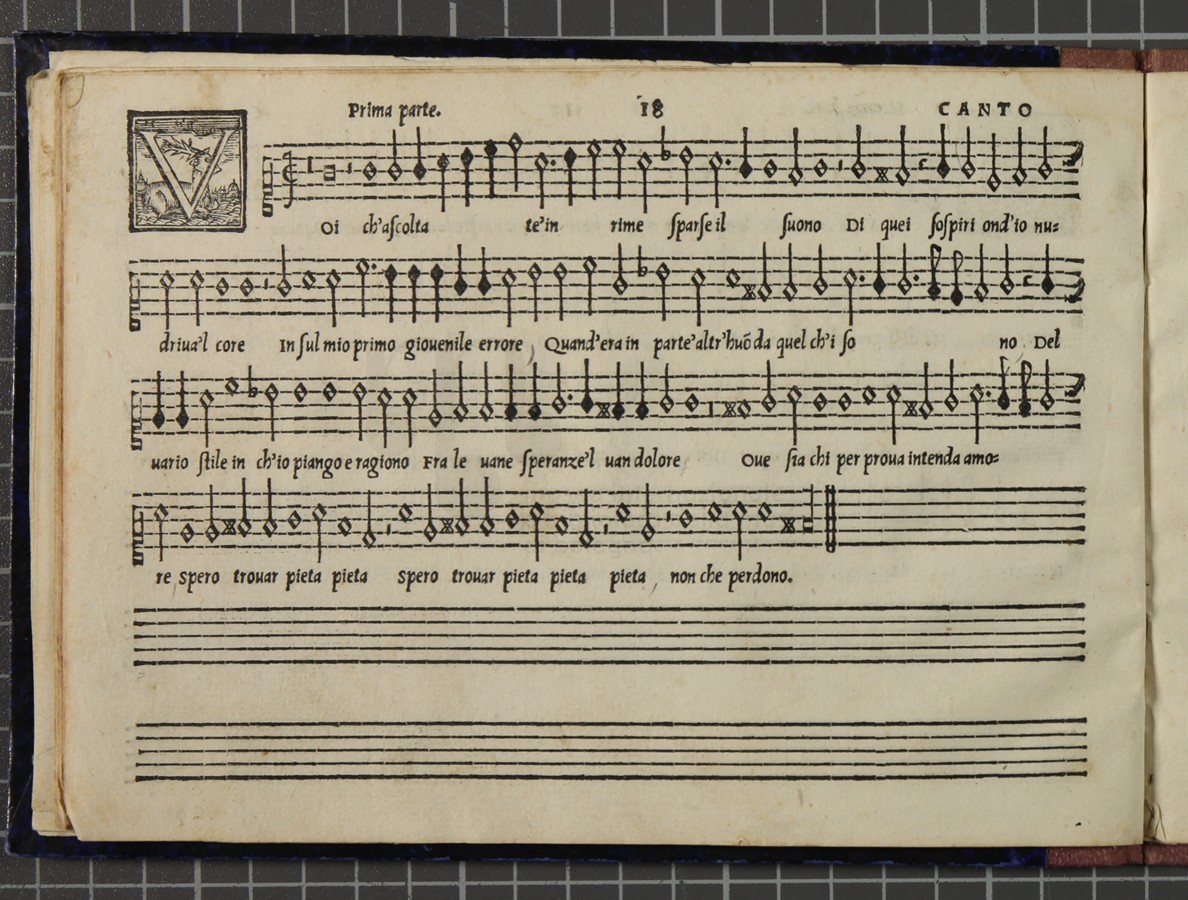 Prima parte. 18 CANTO
VOi ch'aſcolta te'in rime ſparſe il ſuono Di quei ſoſpiri ond'io nu=
driua'l core In ſul mio primo giouenile errore, Quand'era in parte'altr'huõ da quel ch'i ſo no, Del
uario ſtile in ch'io piango e ragiono Fra le uane ſperanze'l uan dolore, Oue ſia chi per proua intenda amo=
re, spero trouar pieta pieta spero trouar pieta pieta pieta, non che perdono.